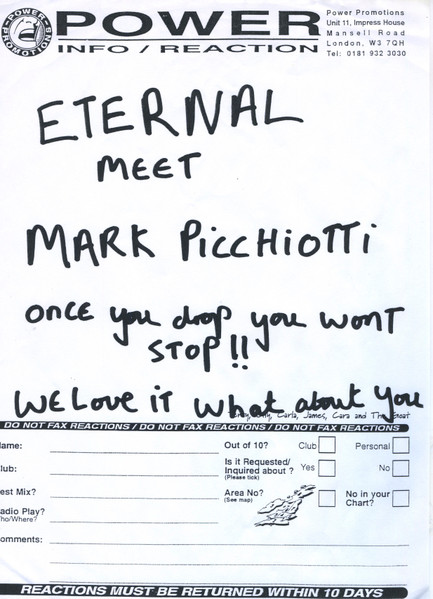 POWER PROMOTIONS
POWER
INFO / REACTION
Power Promotions
Unit 11, Impress House
Mansell Road
London, W3 7QH
Tel: 0181 932 3030
ETERNAL
MEET
MARK PiCCHiOTTi
ONCE you drop you WONT
STOP !!
WE LOVE iT what about you
Carla, James, Cara and The
DO NOT FAX REACTIONS / DO NOT FAX REACTIONS / DO NOT FAX REACTIONS
ame: Out of 10? Club Personal
lub: Is it Requested/ Inquired about ? (Please tick) Yes No
est Mix? Area No? (See map) No in your Chart?
adio Play?
ho/Where?
omments:
REACTIONS MUST BE RETURNED WITHIN 10 DAYS